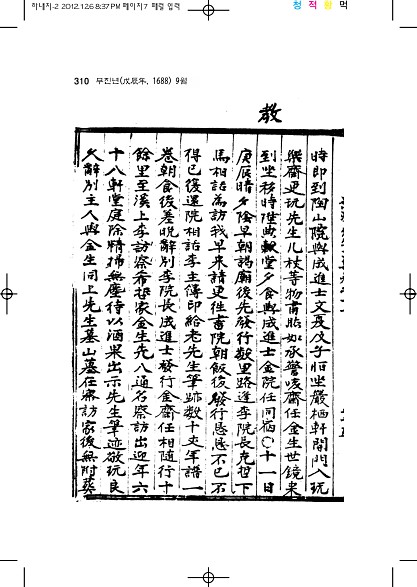 하내지-2 2012.12.6 8:37 PM 페이지7 제팅 입력
청 적 황 먹
310 무진년(戊辰年, 1688) 9월
敎
時即到陶山院與成進士文夏父子陪坐巖栖軒開門入玩
樂齋更玩先生几杖等物肅然如承警咳齋任金生世鏡來
到坐移時陞典敎堂夕食與成進士金院任同宿○十一日
庚辰晴夕陰早朝謁廟後先發行數里路逢李院長克哲下
馬相話爲訪我早來請更往書院朝飯後發行懇懇不已不
得已復還院相話李主傳印給老先生筆跡數十丈年譜一
卷朝食後差晩辭別李院長成進士發行金齋任相隨行十
餘里至溪上李訪察希哲家金生先人通名察訪出迎年六
十八軒堂庭除精掃無塵待以酒果出示先生筆迹敬玩良
久辭別主人與金生同上先生墓山墓在察訪家後無附葬